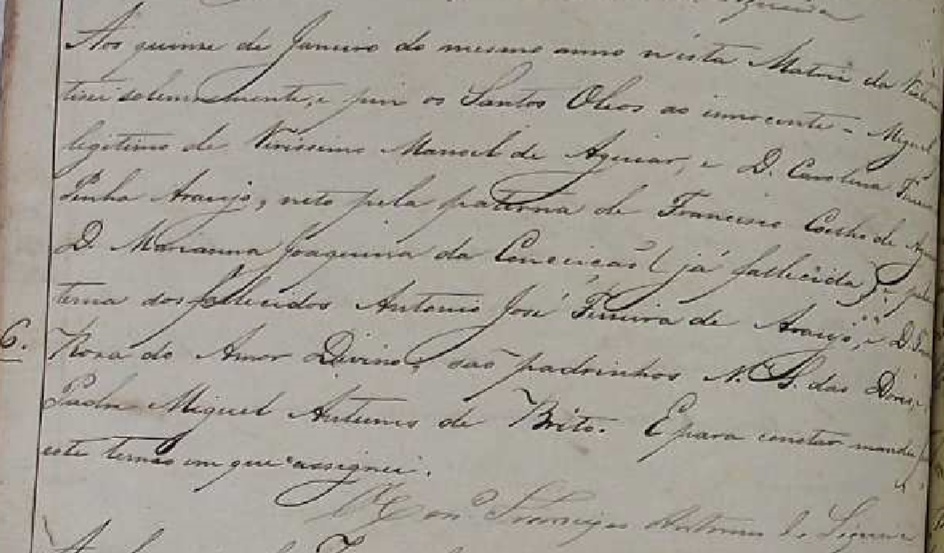 Aos quinse de Janeiro do mesmo anno nésta Matriz da
tisei solemnemente, e puz os Santos Oleos ao innocente - Miguel
legitimo de Virissimo Manoel de Aguiar, e D. Carolina
Penha Araujo, neto pela paterna de Francisco Coelho de
D. Marianna Joaquina da Conceicaõ (já fallecida) e
terna dos fallecidos Antonio José Ferreira de Araujo, e D.
6. Rosa do Amor Divino, saõ padrinhos N. S. das Dores, e
Padre Miguel Antunes de Brito. E para constar mandei
este termo em que assignei.
Antunes de Siqueira